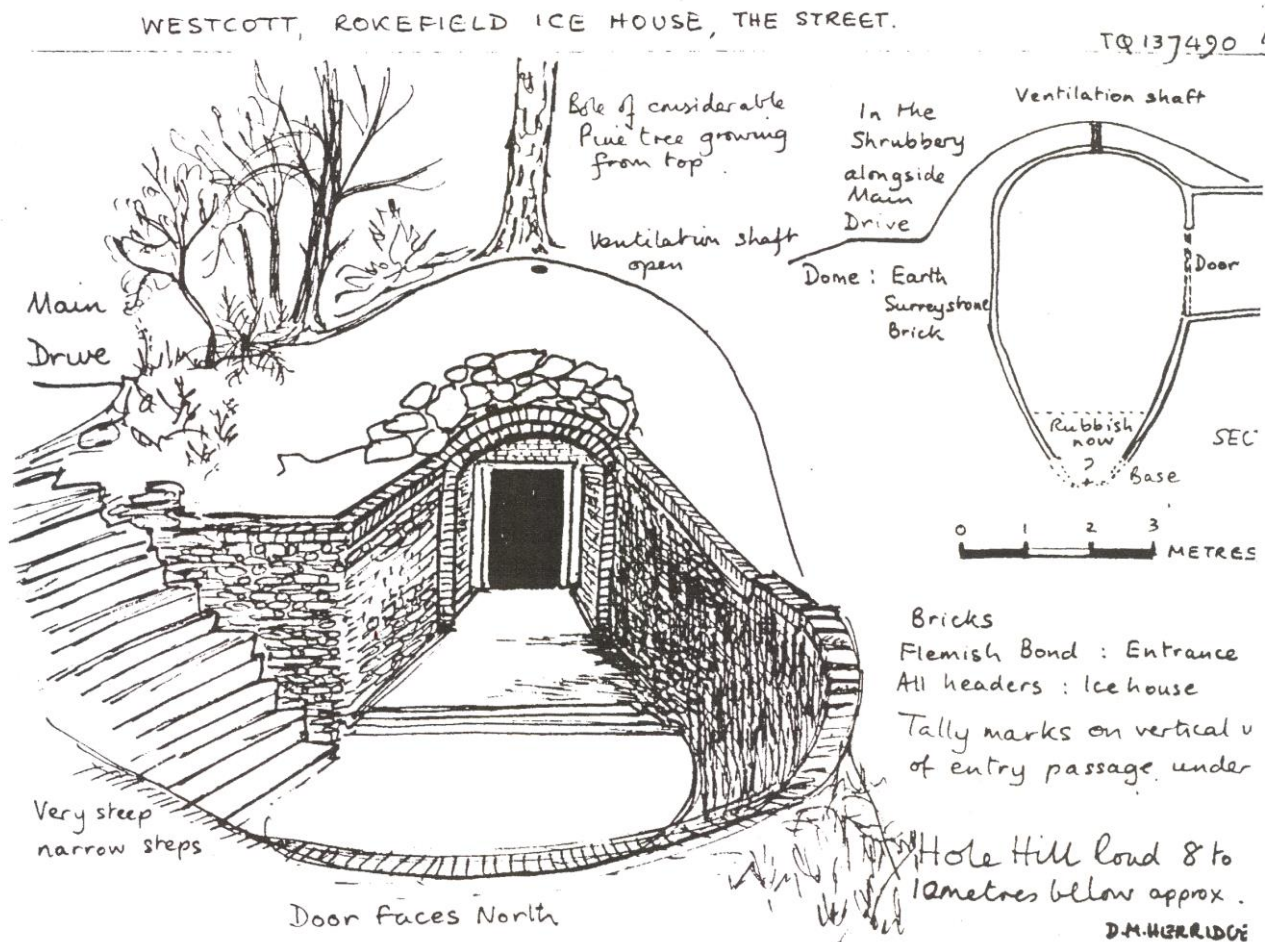 WESTCOTT, ROKEFIELD ICE HOUSE, THE STREET.
TQ 137490
Bole of considerable
Pine tree growing
from top.
Ventilation shaft
open
Main
Drive
Very steep
narrow steps
Door Faces North
In the
Shrubbery
alongside
Main
Drive
Ventilation shaft
Dome : Earth
Surreystone
Brick
Door
Rubbish
now
?
Base
SEC
0 1 2 3
METRES
Bricks
Flemish Bond : Entrance
All headers : Icehouse
Tally marks on vertical
of entry passage under
Hole Hill Road 8 to
10metres bellow approx.
D.M.HERRIDGE